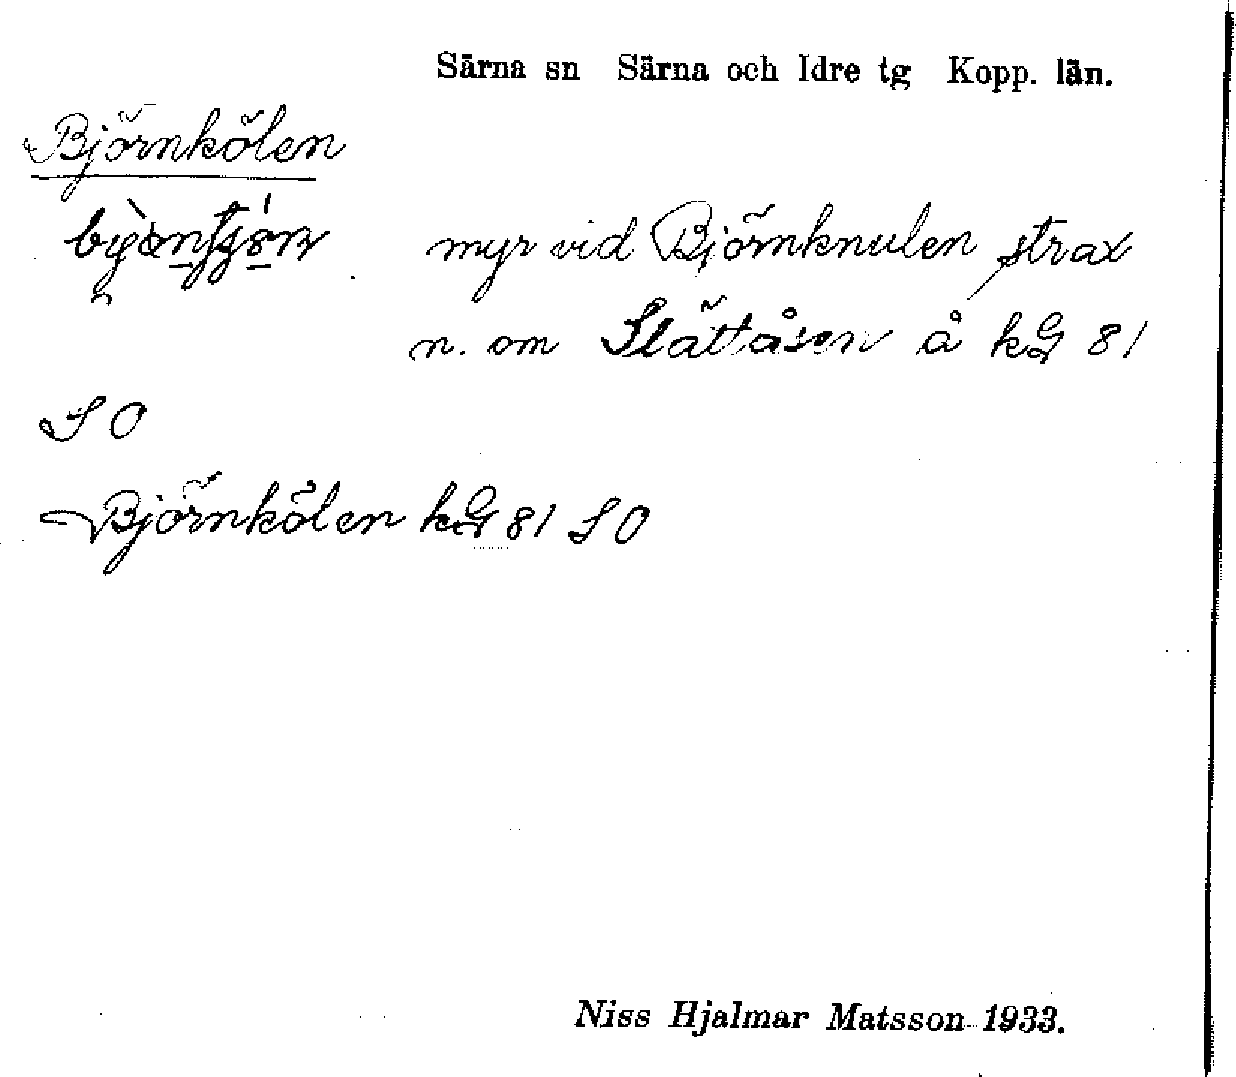 Särna sn Särna och Idre tg Kopp. län.
Björnkölen
myr vid Björnknulen strax
n. om Slättåsen å kG 81
SO
Björnkölen kG 81 SO
Niss Hjalmar Matsson 1933.